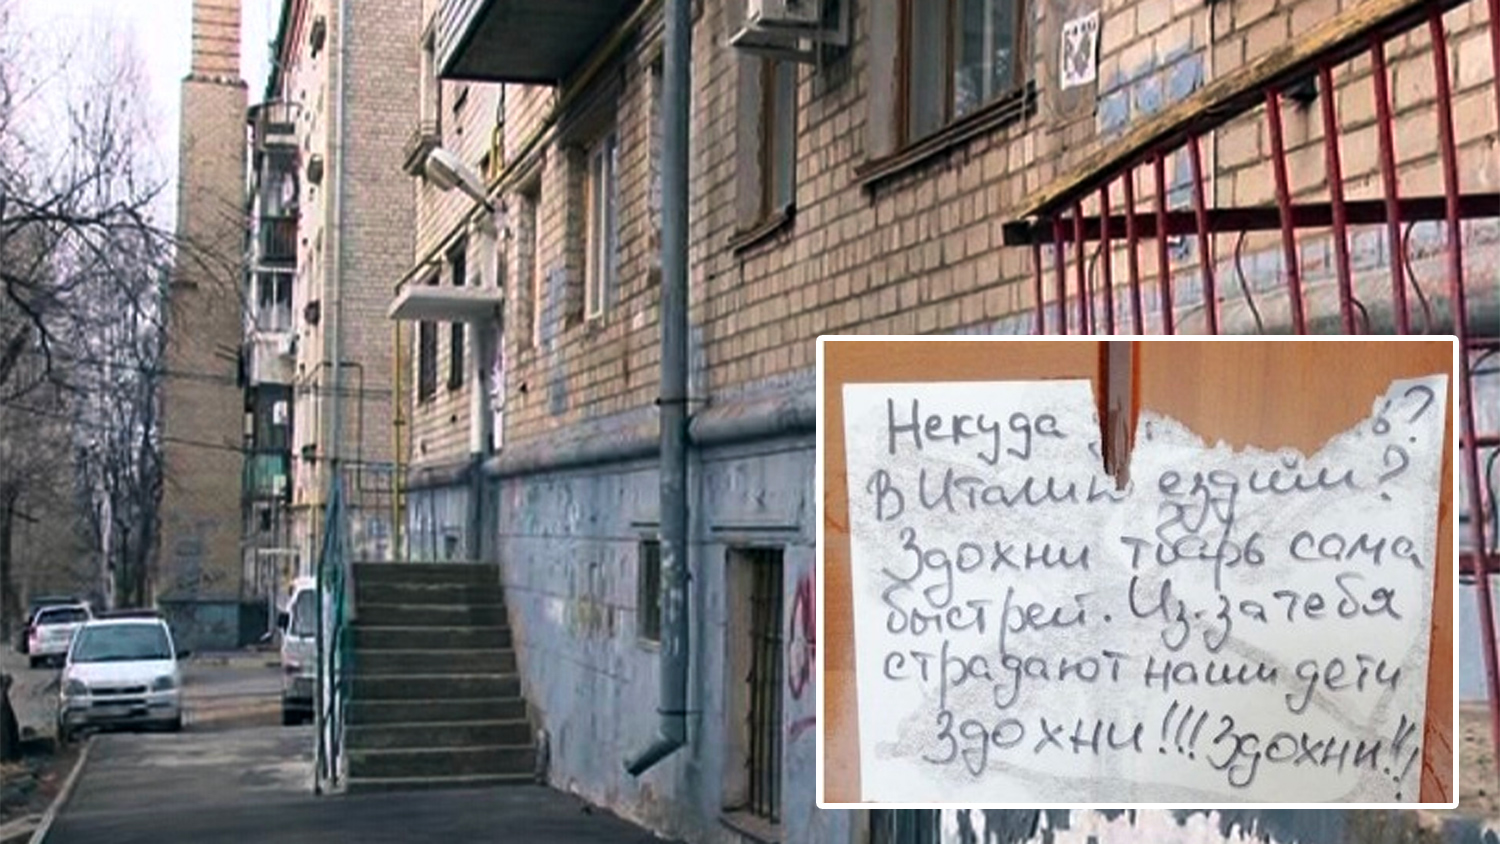 Некуда
В Италии ездим?
Здохни тварь сама
быстрей. Из-за тебя
страдают наши дети
Здохни!!! Здохни!!!